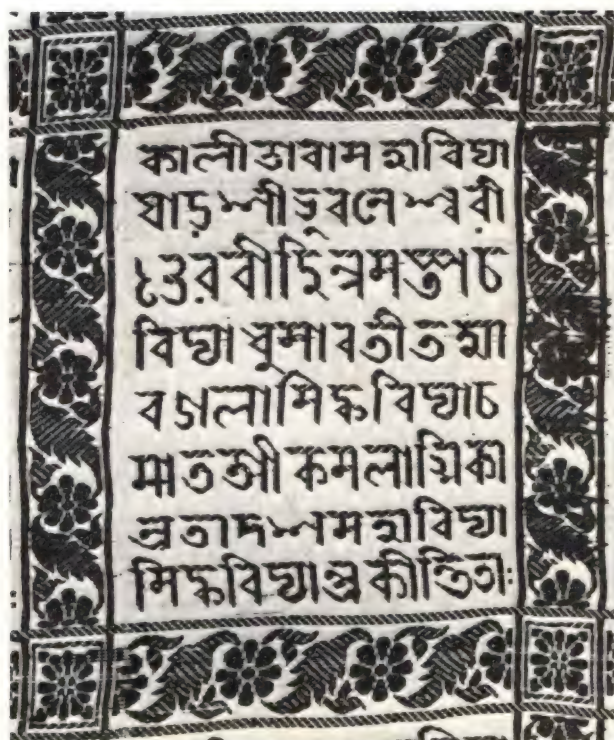 কালীতাবামহাবিদ্যা
ষাড়শীভুবনেশ্বরী
ভৈরবীছিন্নমস্তাচ
বিদ্যাধুমাবতীতথা
বগলাসিদ্ধবিদ্যাচ
মাতঙ্গীকমলাত্মিকা
এতাদশমহাবিদ্যা
সিদ্ধবিদ্যাপ্রকীত্তিতাঃ